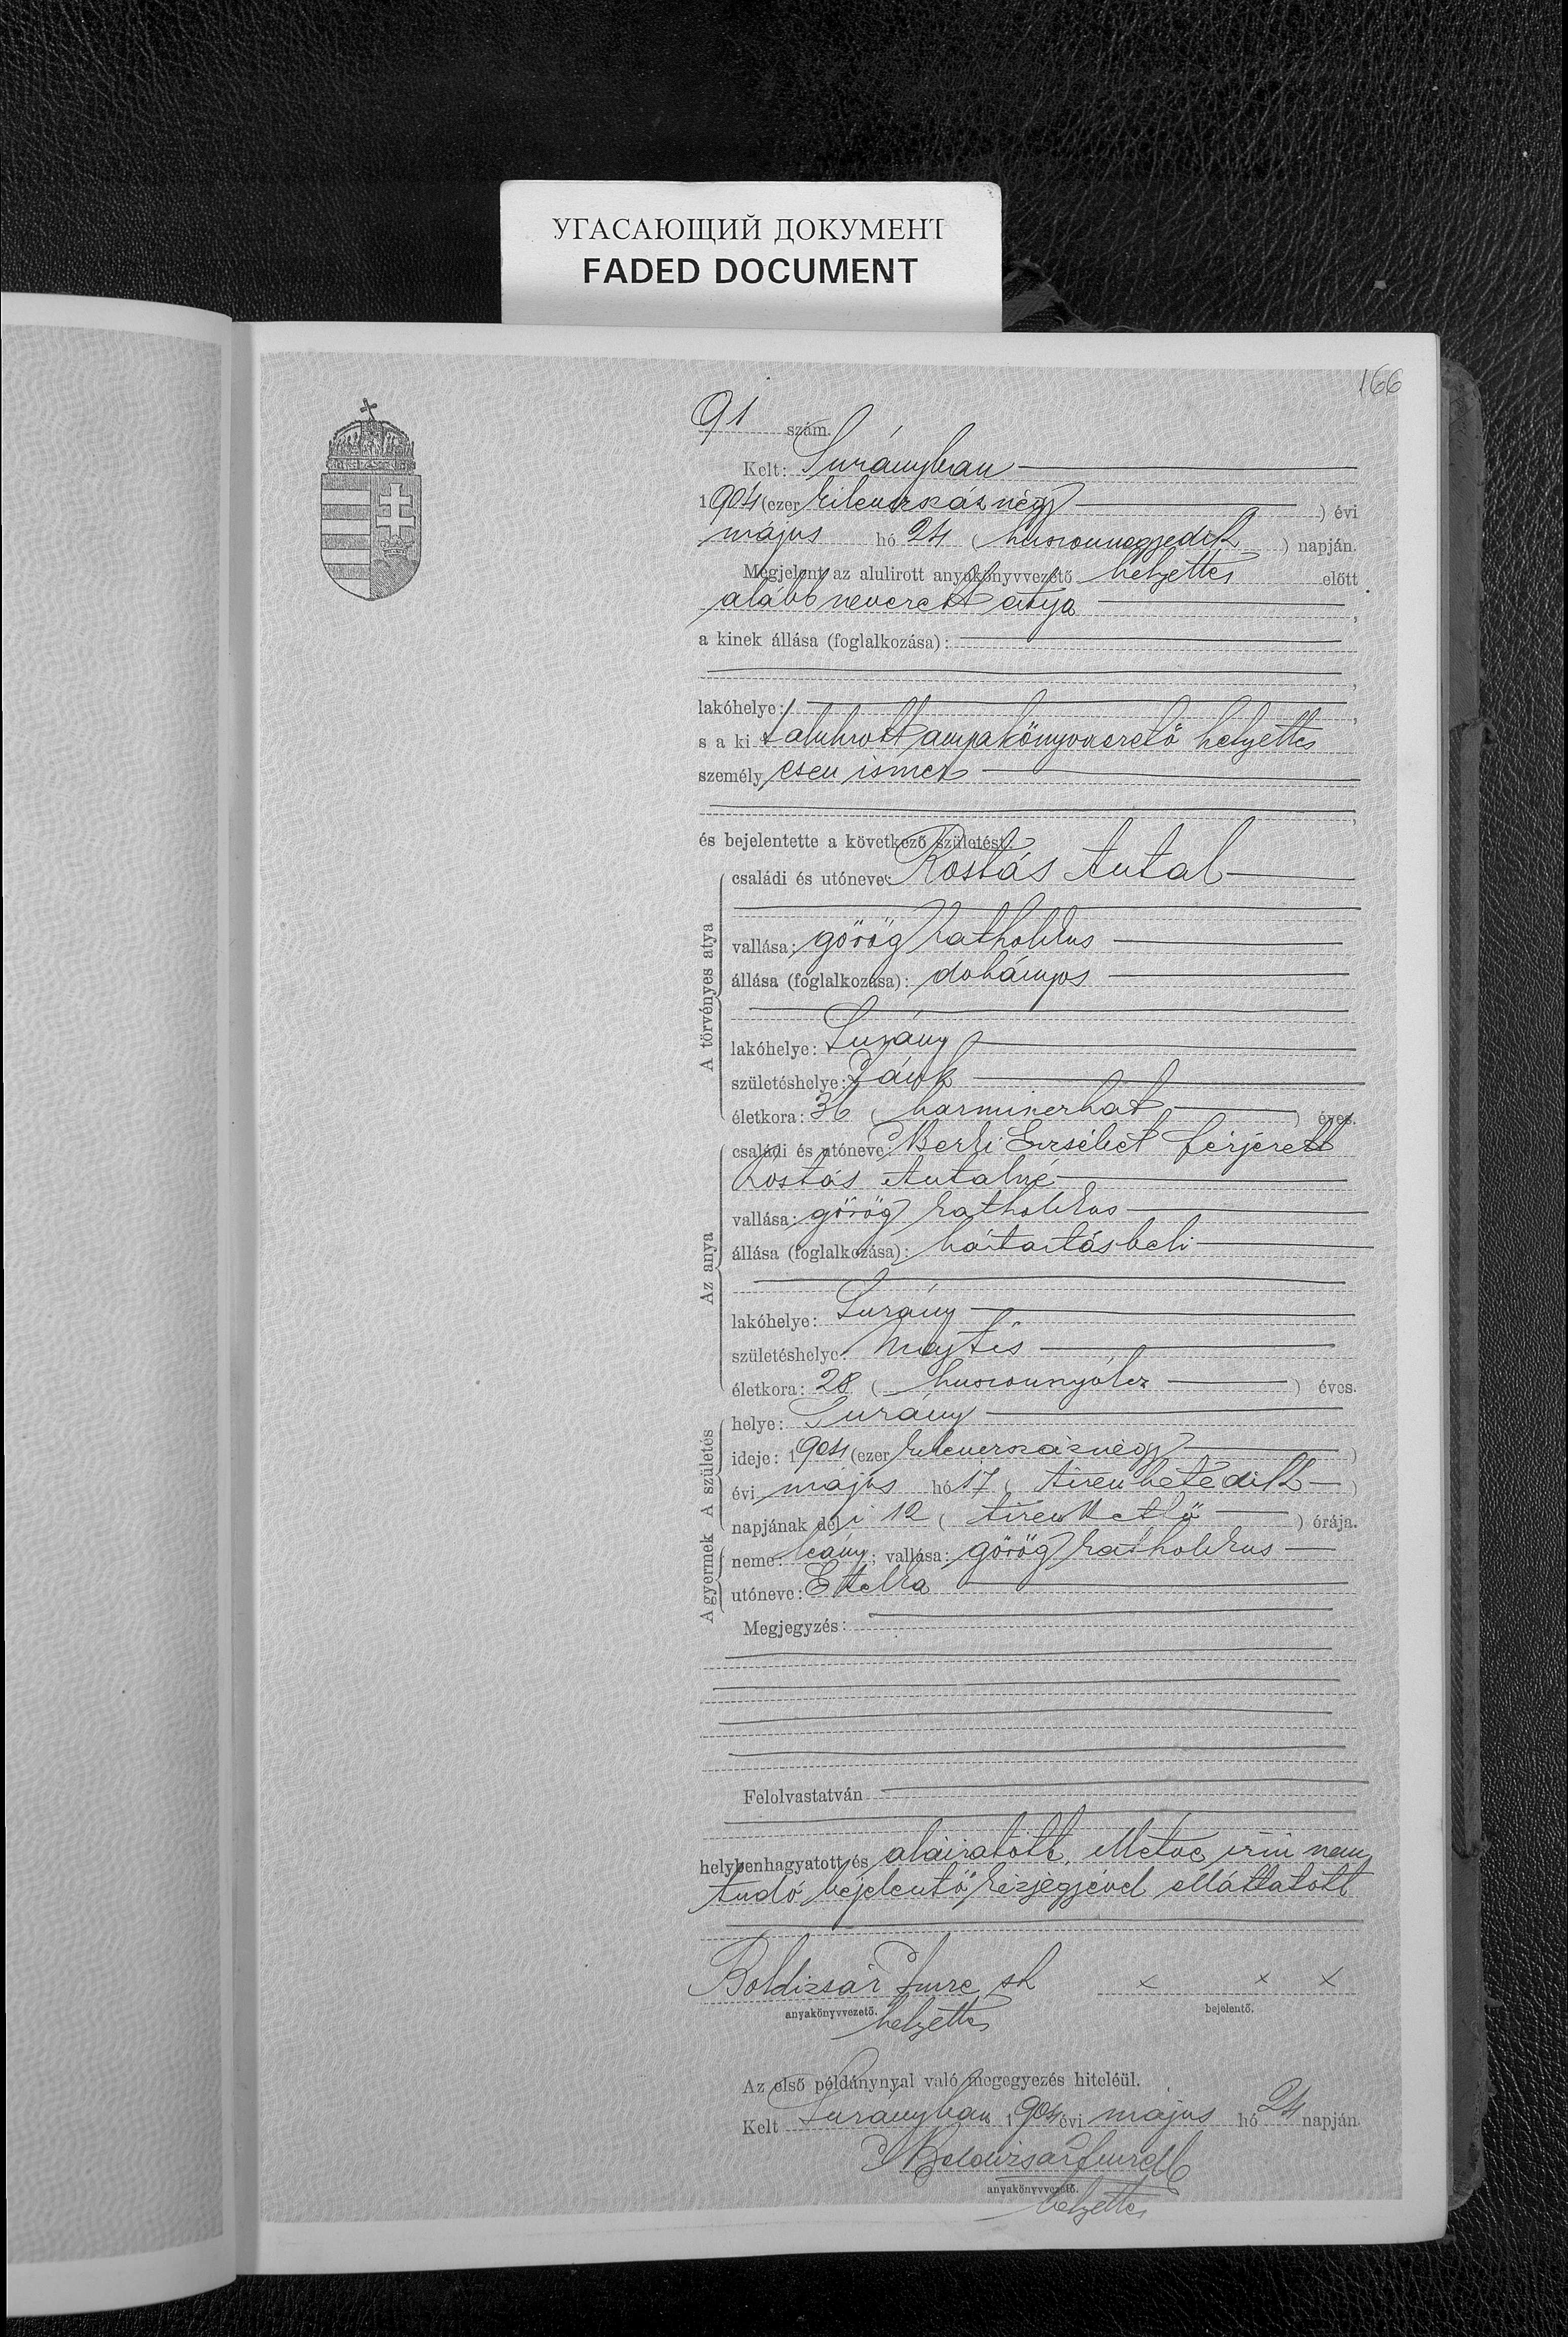 УГАСАЮЩИЙ ДОКУМЕНТ
FADED DOCUMENT
166
91 szám.
Kelt: Surányban
1904 (ezer kilencszáznégy ) évi
május hó 24 ( huszonnegyedik ) napján.
Megjelent az alulirott anyakönyvvezető helyettes előtt
alább nevezett atya
a kinek állása (foglalkozása):
lakóhelye:
s a ki t alulirott anyakönyvvezető helyettes
személyesen ismer
és bejelentette a következő születést:
A törvényes atya
családi és utóneve: Rostás Antal
vallása: görög katholikus
állása (foglalkozása): dohányos
lakóhelye: Surány
születéshelye:
életkora: 36 ( harminczhat ) éves.
Az anya
családi és utóneve: Berki Erzsébet férjezett
Rostás Antalné
vallása: görög katholikus
állása (foglalkozása): háztartásbeli
lakóhelye: Surány
születéshelye: Majtis
életkora: 28 ( huszonnyolcz ) éves.
A születés
helye: Surány
ideje: 1904 (ezer kilenczszáznégy )
évi május hó 17 ( tizenhetedik )
napjának déli 12 ( tizenkettő ) órája.
A gyermek
neme: leány; vallása: görög katholikus
utóneve: Etelka
Megjegyzés:
Felolvastatván
helybenhagyatott és aláiratott, illetve irni nem
tudó bejelentő kézjegyével elláttatott
Boldizsár Imre sk x x x
anyakönyvvezető. bejelentő.
helyettes
Az első példánynyal való megegyezés hiteléül.
Kelt Surányban 1904 évi május hó 24 napján.
Boldizsár Imre
anyakönyvvezető.
helyettes